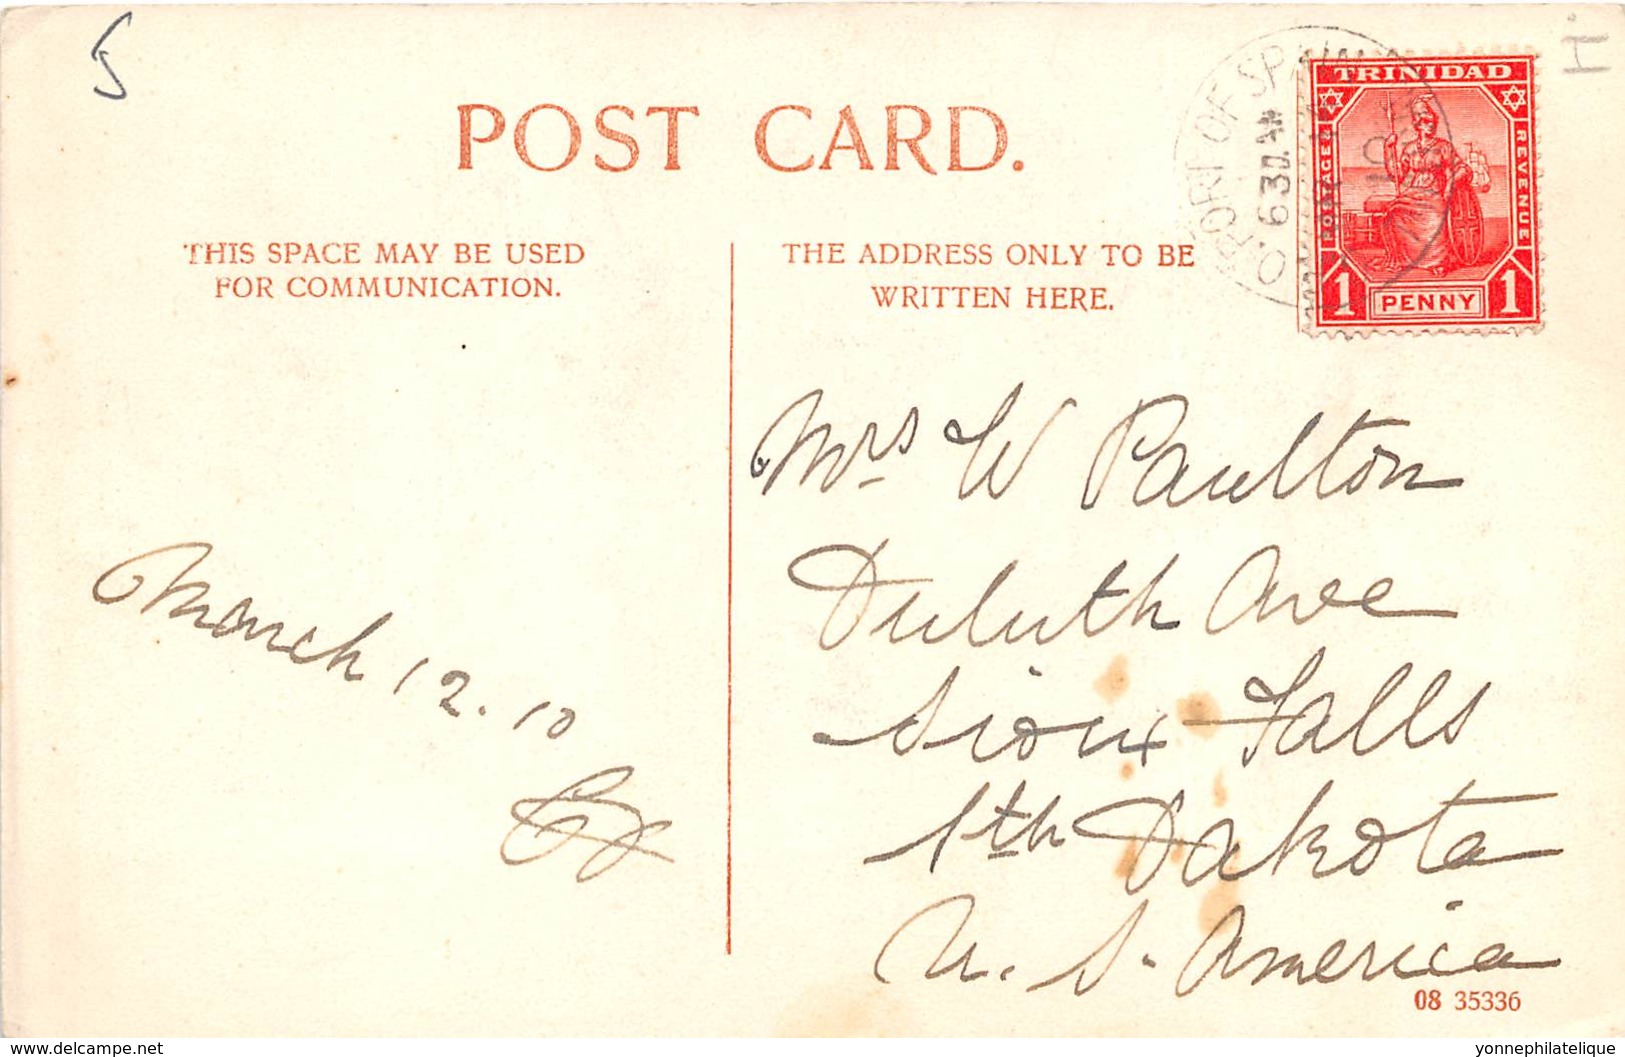 5
POST CARD.
THIS SPACE MAY BE USED
FOR COMMUNICATION.
THE ADDRESS ONLY TO BE
WRITTEN HERE.
PORT OF SPAIN
TRINIDAD
POSTAGE & REVENUE
1 PENNY 1
Mrs W Paulton
Duluth Ave
Sioux Falls
Sth Dakota
U. S. America
March 12. 10
08 35336
delcampe.net
yonnephilatelique